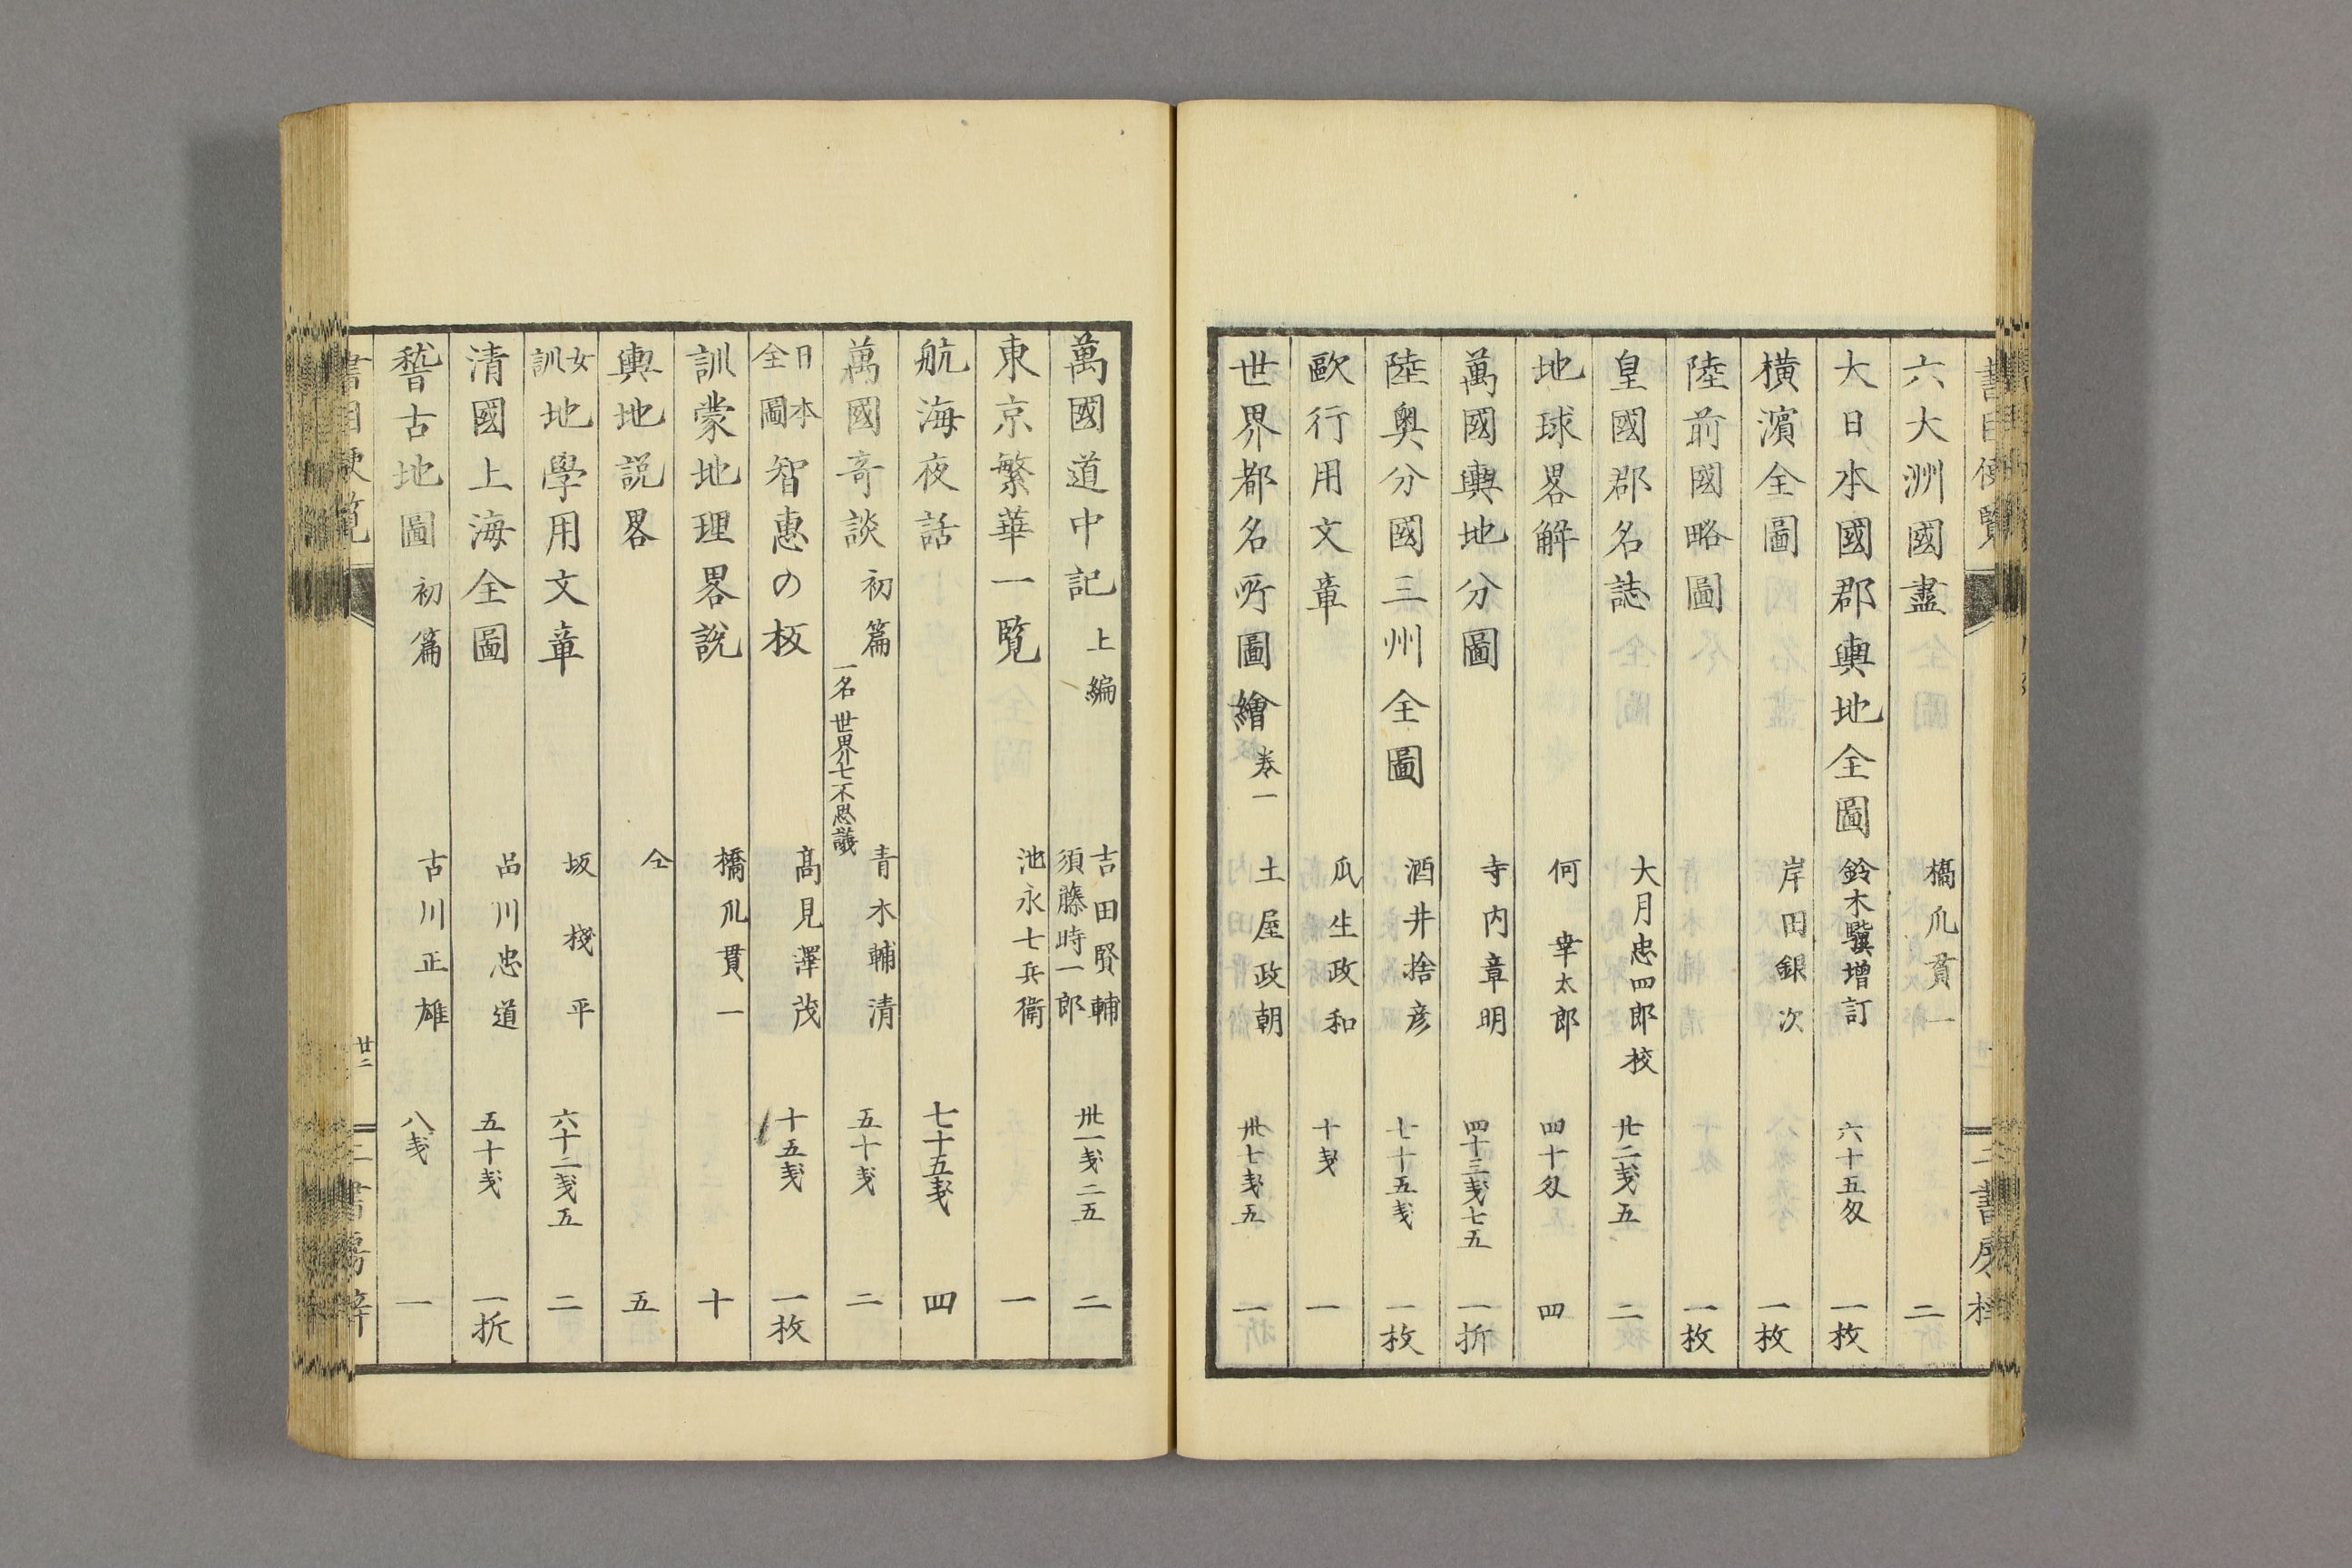 六大洲國盡 橋爪貫一 二
大日本國郡輿地全圖 鈴木驥増訂 六十五匁 一枚
横濱全圖 岸田銀次 一枚
陸前國略圖 一枚
皇國郡名誌 大月忠四郎校 廿二戋五 二
地球畧解 何幸太郎 四十匁 四
萬國輿地分圖 寺内章明 四十三戋七五 一折
陸奥分國三州全圖 酒井捨彦 七十五戋 一枚
歐行用文章 瓜生政和 十戋 一
世界都名所圖繪 巻一 土屋政朝 卅七戋五 一
萬國道中記 上編 吉田賢輔 須藤時一郎 卅一戋二五 二
東京繁華一覧 池永七兵衞 一
航海夜話 七十五戋 四
萬國奇談 初篇 一名世界七不思議 青木輔清 五十戋 二
日本全圖智惠の板 髙見澤茂 十五戋 一枚
訓蒙地理畧説 橋爪貫一 十
輿地説畧 仝 五
女訓地學用文章 坂棧平 六十二戋五 二
清國上海全圖 品川忠道 五十戋 一折
稽古地圖 初篇 古川正雄 八戋 一
廿二